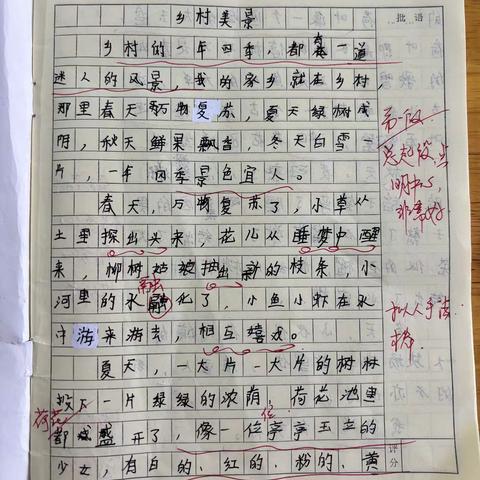 乡村美景
批语
乡村的一年四季,都有一道
迷人的风景,我的家乡就在乡村,
那里春天万物复苏,夏天绿树成
阴,秋天鲜果飘香,冬天白雪一
片,一年四季景色宜人。
第一段
总起段,点
明中心,
非常好。
春天,万物复苏了,小草从
土里探出头来,花儿从睡梦中醒
来,柳树姑 抽出新的枝条,小
融
河里的水融化了,小鱼小虾在水
中游来游去,相互嬉戏。
拟人手法
夏天,一大片一大片的树林
投下一片绿绿的浓荫,荷花池里
荷花
位
都盛开了,像一位亭亭玉立的
少女,有白的、红的、粉的、黄
评
分